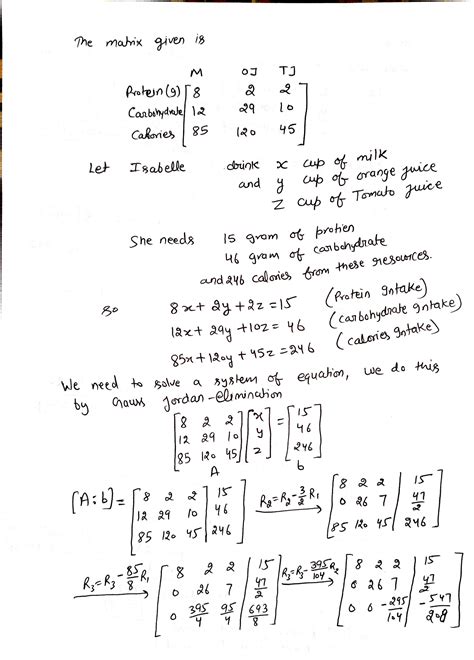 The matrix given is
M OJ TJ
Protein (g) [8 2 2]
Carbohydrate [12 29 10]
Calories [85 120 45]
Let Isabelle drink x cup of milk
and y cup of orange juice
Z cup of Tomato juice
She needs 15 gram of protien
46 gram of carbohydrate
and 246 calories from these resources.
so 8x + 2y + 2z = 15 (Protein Intake)
12x + 29y + 10z = 46 (carbohydrate Intake)
85x + 120y + 45z = 246 (calories Intake)
We need to solve a system of equation, we do this
by Gauss Jordan-elimination
[8 2 2; 12 29 10; 85 120 45] [x; y; z] = [15; 46; 246]
A b
[A:b] = [8 2 2 | 15; 12 29 10 | 46; 85 120 45 | 246] R2=R2-3/2 R1 → [8 2 2 | 15; 0 26 7 | 47/2; 85 120 45 | 246]
R3=R3-85/8 R1 → [8 2 2 | 15; 0 26 7 | 47/2; 0 395/4 95/4 | 693/8] R3=R3-395/104 R2 → [8 2 2 | 15; 0 26 7 | 47/2; 0 0 -295/104 | -547/208]